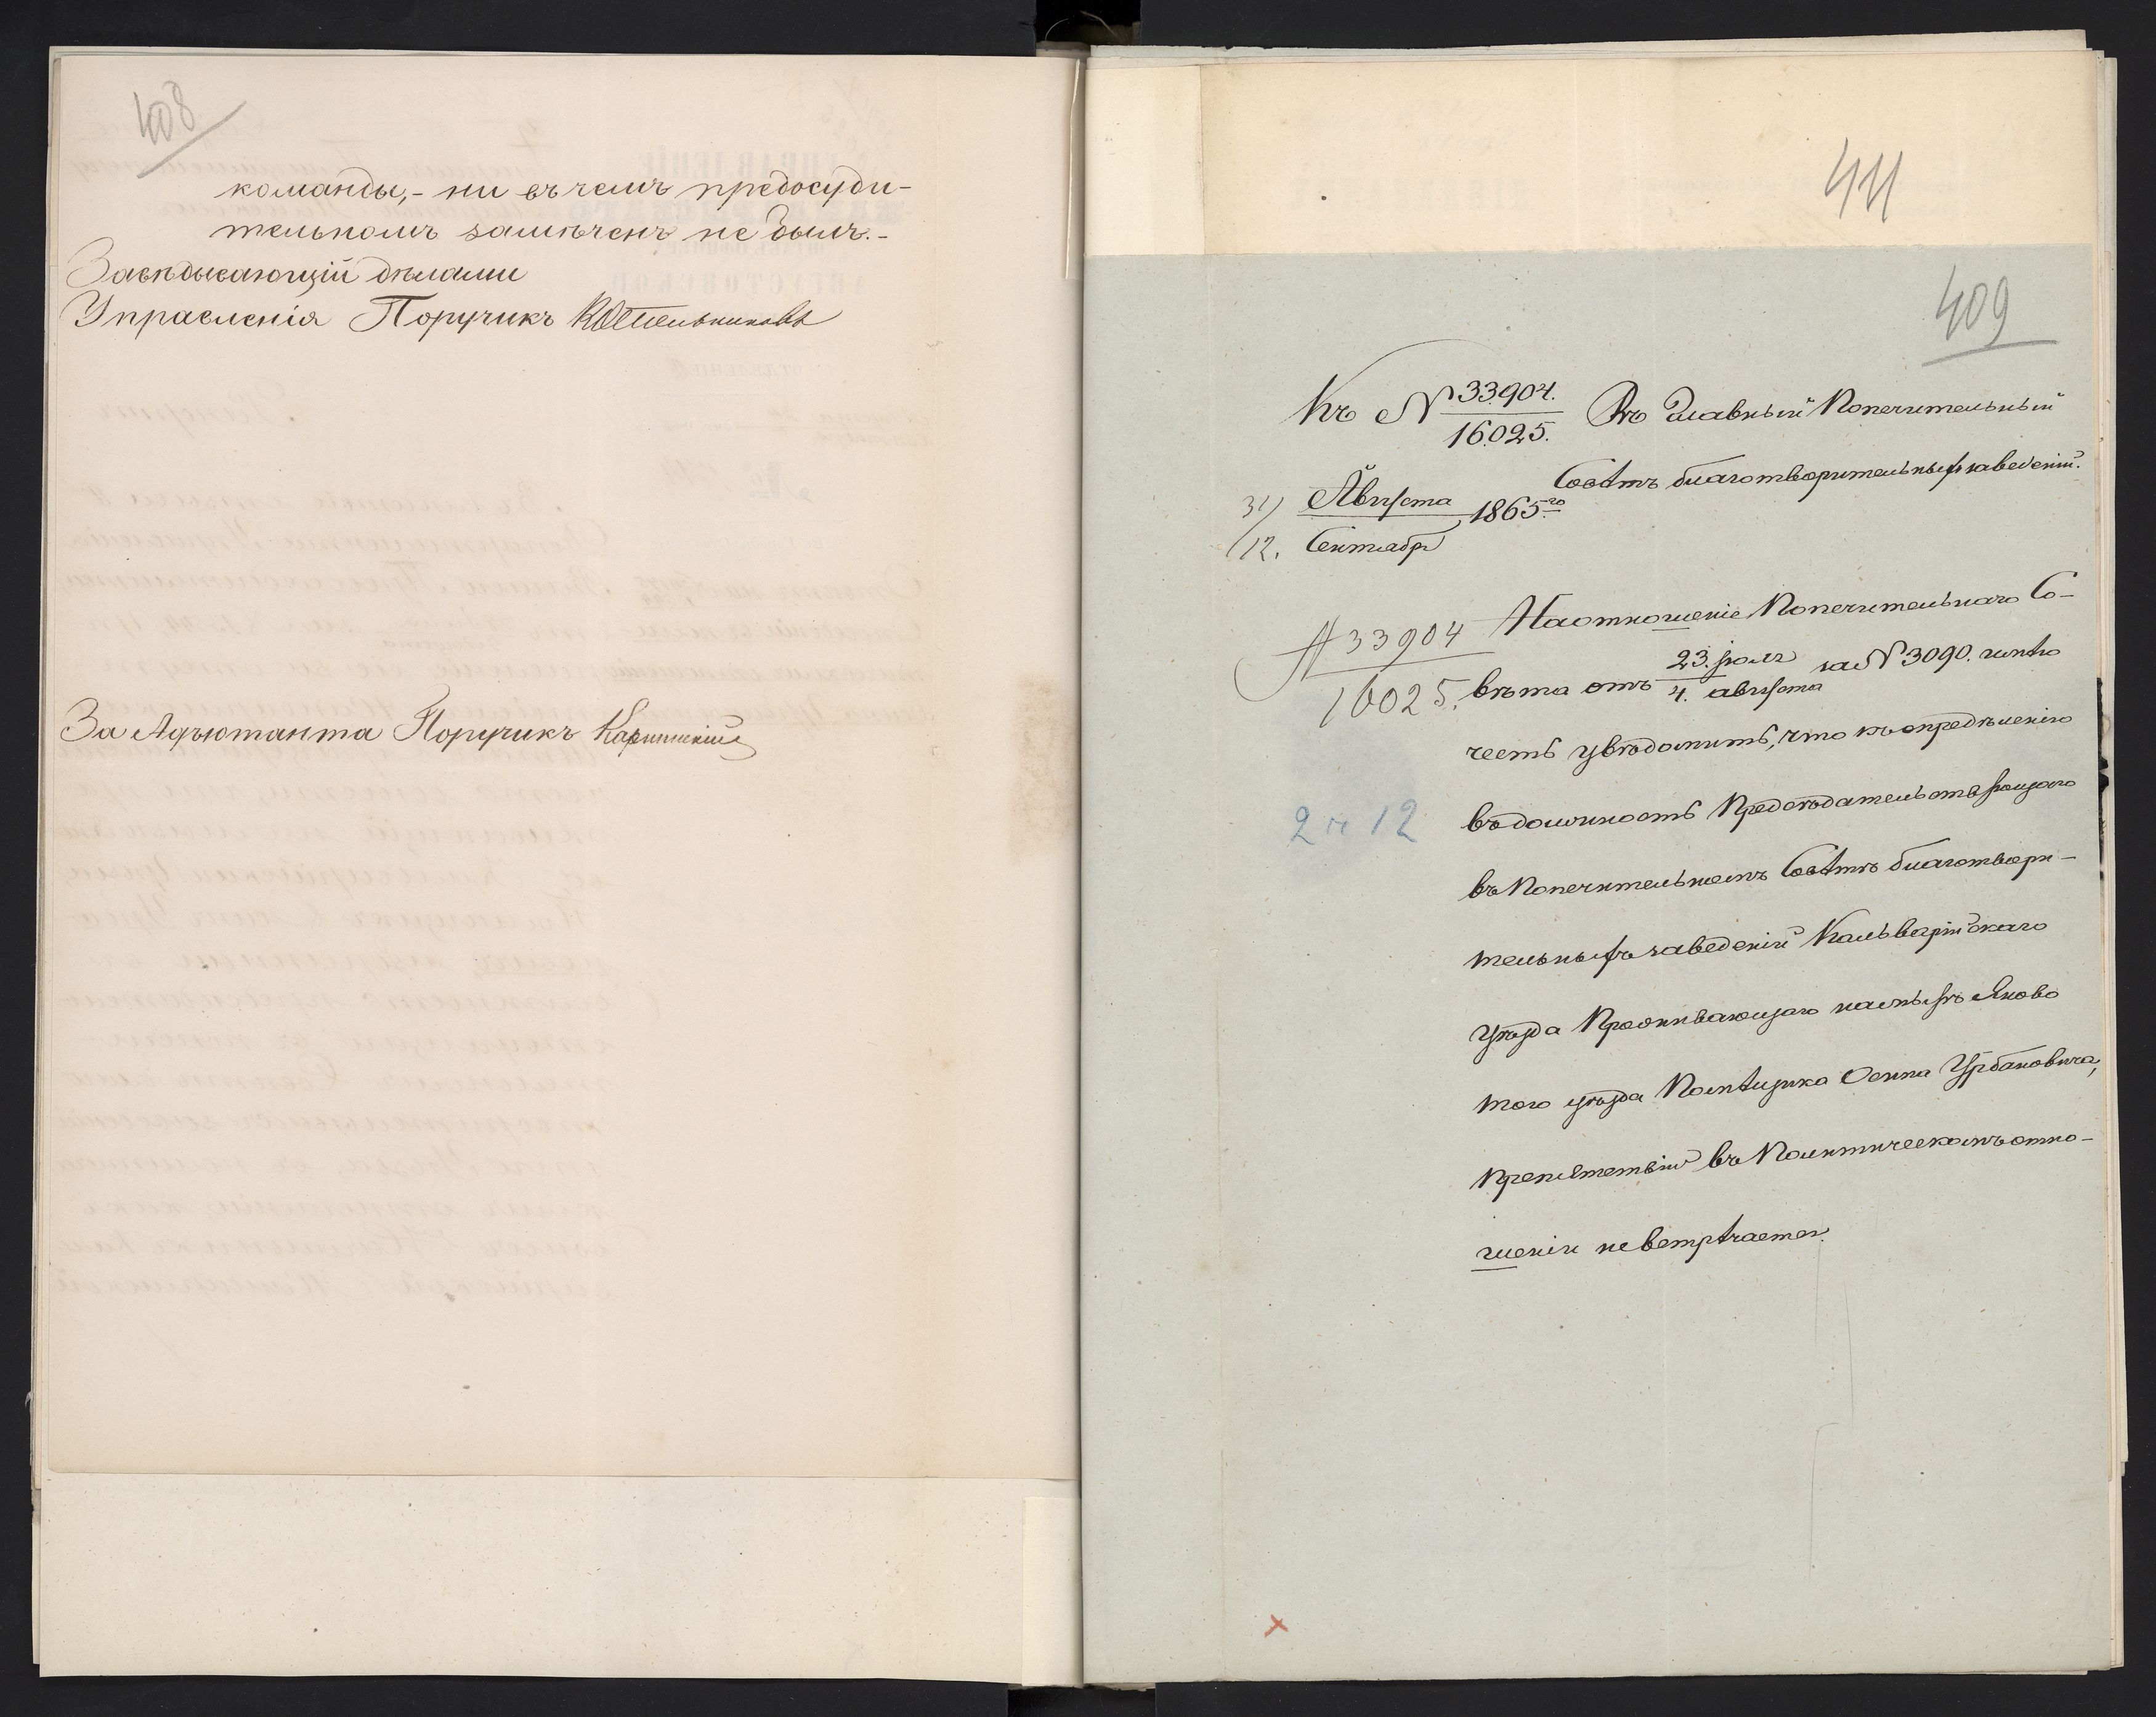 408
команды,- ни въ чемъ предосуди-
тельномъ замѣченъ не былъ.-
Завѣдывающій дѣлами
Управленія Поручикъ Котельниковъ
За Адъютанта Поручикъ
411
409
Къ № 33904. Въ Главный Попечительный
16025.
Совѣтъ благотворительныхъ заведеній.
31/ Августа 1865го
/12. Сентября
На отношеніе Попечительнаго Со-
№ 33904
16025.
вѣта отъ 23. Іюля за № 3090. имѣю
4. августа
честь увѣдомить, что къ опредѣленію
въ должность Предсѣдательствующаго
2 и 12
въ Попечительномъ Совѣтѣ благотвори-
тельныхъ заведеній Кальварійскаго
уѣзда Проживающаго
того уѣзда Помѣщика Осипа Урбановича,
препятствій въ Политическомъ отно-
шеніи не встрѣчается.